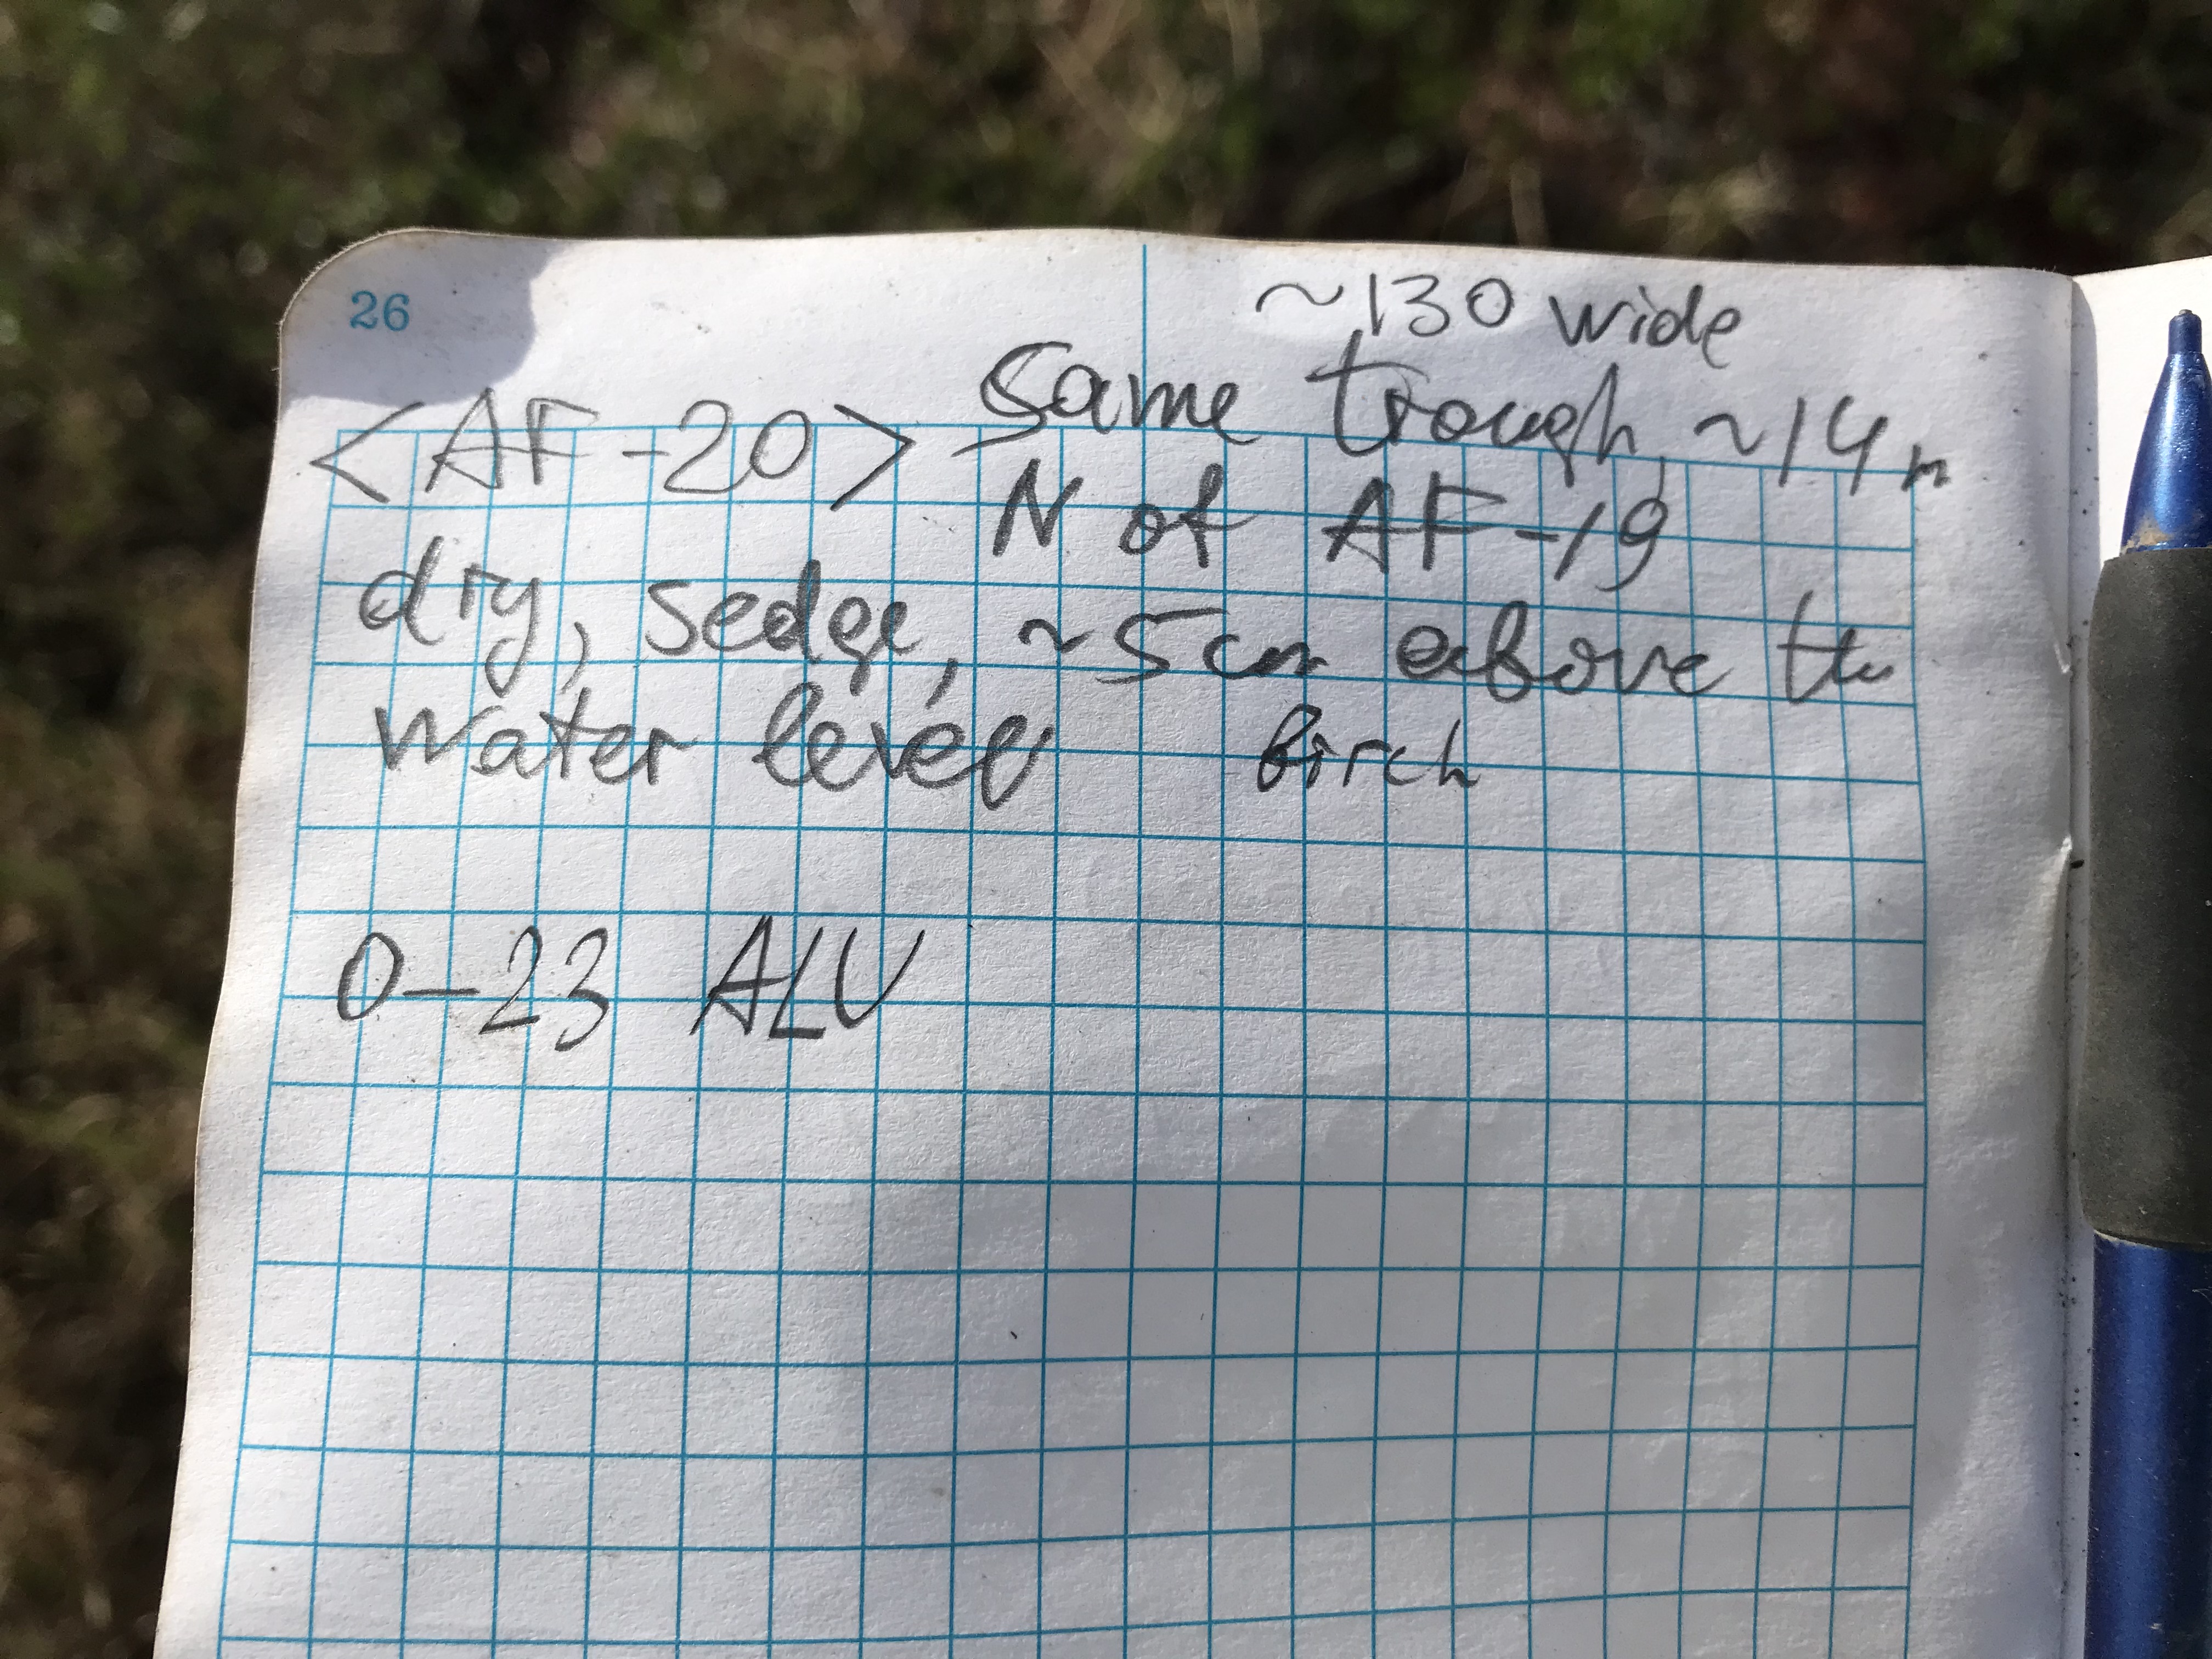 26
~130 wide
<AF-20> Same trough, ~14m
N of AF-19
dry, sedge, ~5cm above the
water level birch
0-23 ALV